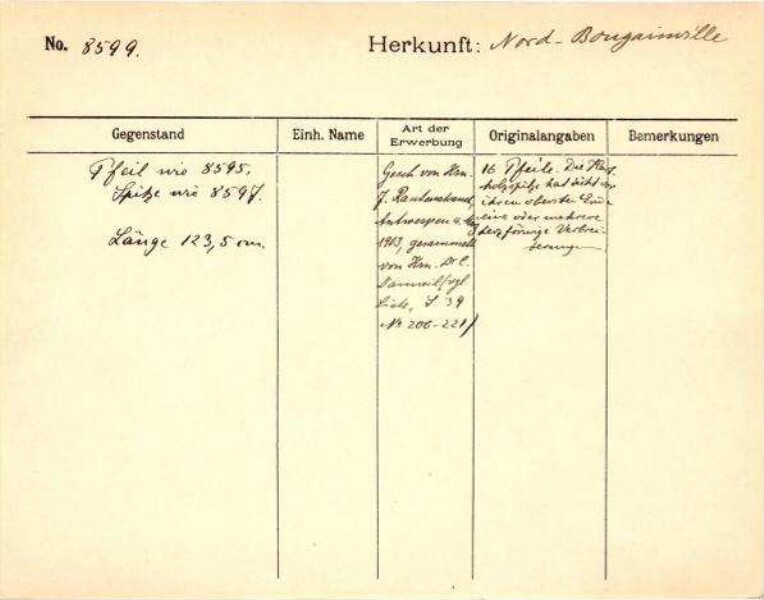 No. 8599. Herkunft: Nord-Bougainville
Gegenstand Einh. Name Art der Erwerbung Originalangaben Bemerkungen
Pfeil wie 8595.
Spitze wie 8597.
Länge 123,5 cm.
Gesch von Hrn.
J. Rautenstrauch,
Antwerpen u.
1913, gesammelt
von Hrn. Dr C.
Liste, S 39
No 206-221)
16 Pfeile. Die Hart-
holzspitze hat dicht vor
ihrem obersten Ende
eine oder mehrere
herzförmige Verbrei-
terungen